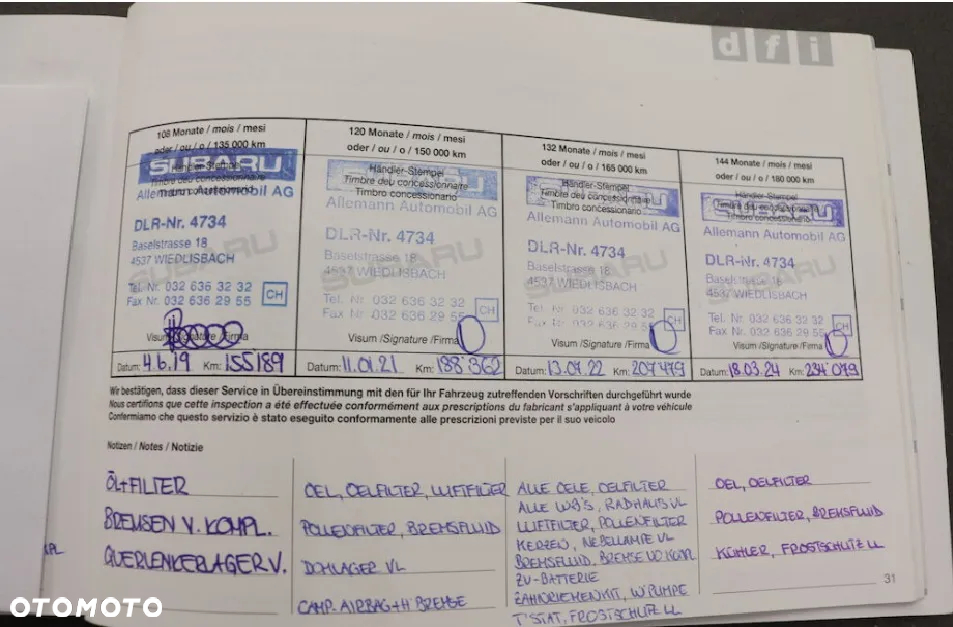 dfi
108 Monate / mois / mesi
oder / ou / o / 135 000 km
SUBARU
Händler-Stempel
Timbre deu concessionnaire
Timbro concessionario
Allemann Automobil AG
DLR-Nr. 4734
Baselstrasse 18
4537 WIEDLISBACH
SUBARU
Tel. Nr. 032 636 32 32
Fax Nr. 032 636 29 55
CH
Visum /Signature /Firma
Datum: 4.6.19 Km: 155'189
120 Monate / mois / mesi
oder / ou / o / 150 000 km
Händler-Stempel
Timbre deu concessionnaire
Timbro concessionario
Allemann Automobil AG
DLR-Nr. 4734
Baselstrasse 18
4537 WIEDLISBACH
SUBARU
Tel. Nr. 032 636 32 32
Fax Nr. 032 636 29 55
CH
Visum /Signature /Firma
Datum: 11.01.21 Km: 188'362
132 Monate / mois / mesi
oder / ou / o / 165 000 km
Händler-Stempel
Timbre deu concessionnaire
Timbro concessionario
Allemann Automobil AG
DLR-Nr. 4734
Baselstrasse 18
4537 WIEDLISBACH
SUBARU
Nr. 032 636 32 32
Fax Nr. 032 636 29 55
CH
Visum /Signature /Firma
Datum: Km: 207'479
144 Monate / mois / mesi
oder / ou / o / 180 000 km
Händler-Stempel
Timbre deu concessionnaire
Timbro concessionario
Allemann Automobil AG
DLR-Nr. 4734
Baselstrasse 18
4537 WIEDLISBACH
SUBARU
Tel. Nr. 032 636 32 32
Fax Nr. 032 636 29 55
CH
Visum /Signature /Firma
Datum: 18.03.24 Km: 234'079
Wir bestätigen, dass dieser Service in Übereinstimmung mit den für Ihr Fahrzeug zutreffenden Vorschriften durchgeführt wurde
Nous certifions que cette inspection a été effectuée conformément aux prescriptions du fabricant s'appliquant à votre véhicule
Confermiamo che questo servizio è stato eseguito conformamente alle prescrizioni previste per il suo veicolo
Notizen / Notes / Notizie
ÖL+FILTER
BREMSEN V. KOMPL.
QUERLENKERLAGER V.
OEL, OELFILTER, LUFTFILTER
POLLENFILTER, BREMSFLUID
DOMLAGER VL
AIRBAG+H BREMSE
ALLE OELE, OELFILTER
RADHAUS VL
LUFTFILTER, POLLENFILTER
KERZEN, NEBELLAMPE VL
BREMSFLUID, BREMSE
ZV-BATTERIE
ZAHNRIEMENKIT, W'PUMPE
T'STAT, FROSTSCHUTZ
OEL, OELFILTER
POLLENFILTER, BREMSFLUID
KÜHLER, FROSTSCHUTZ
31
OTOMOTO